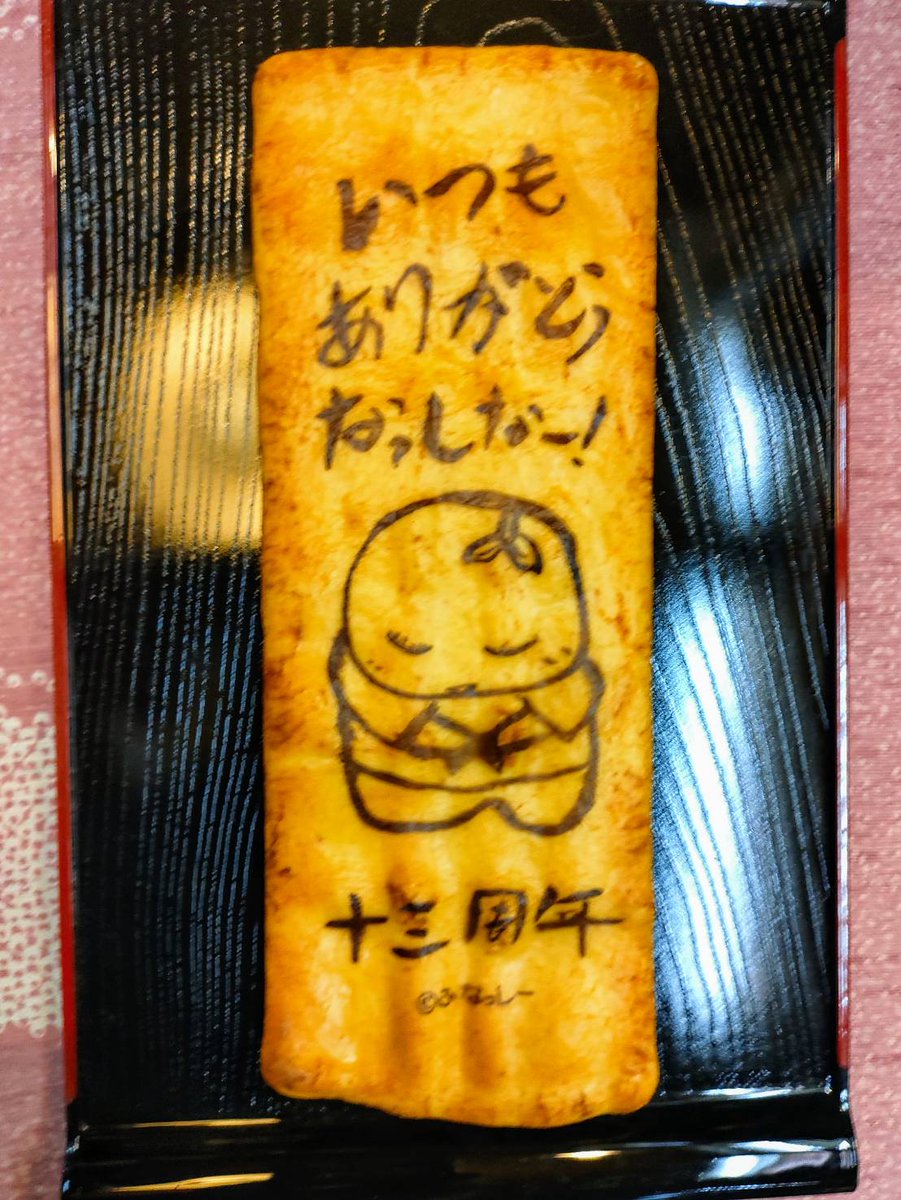 いつも
ありがとう
なっしなー!
十三周年
©ふなっしー